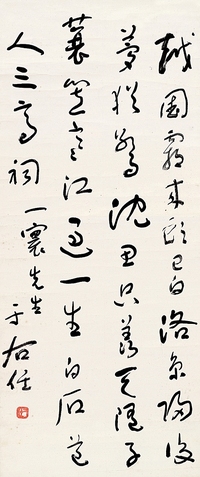 越國霸來頭已白洛京歸後
夢猶驚沈思只羨天隨子
蓑笠寒江過一生白石道
人三高祠
一寰先生
于右任